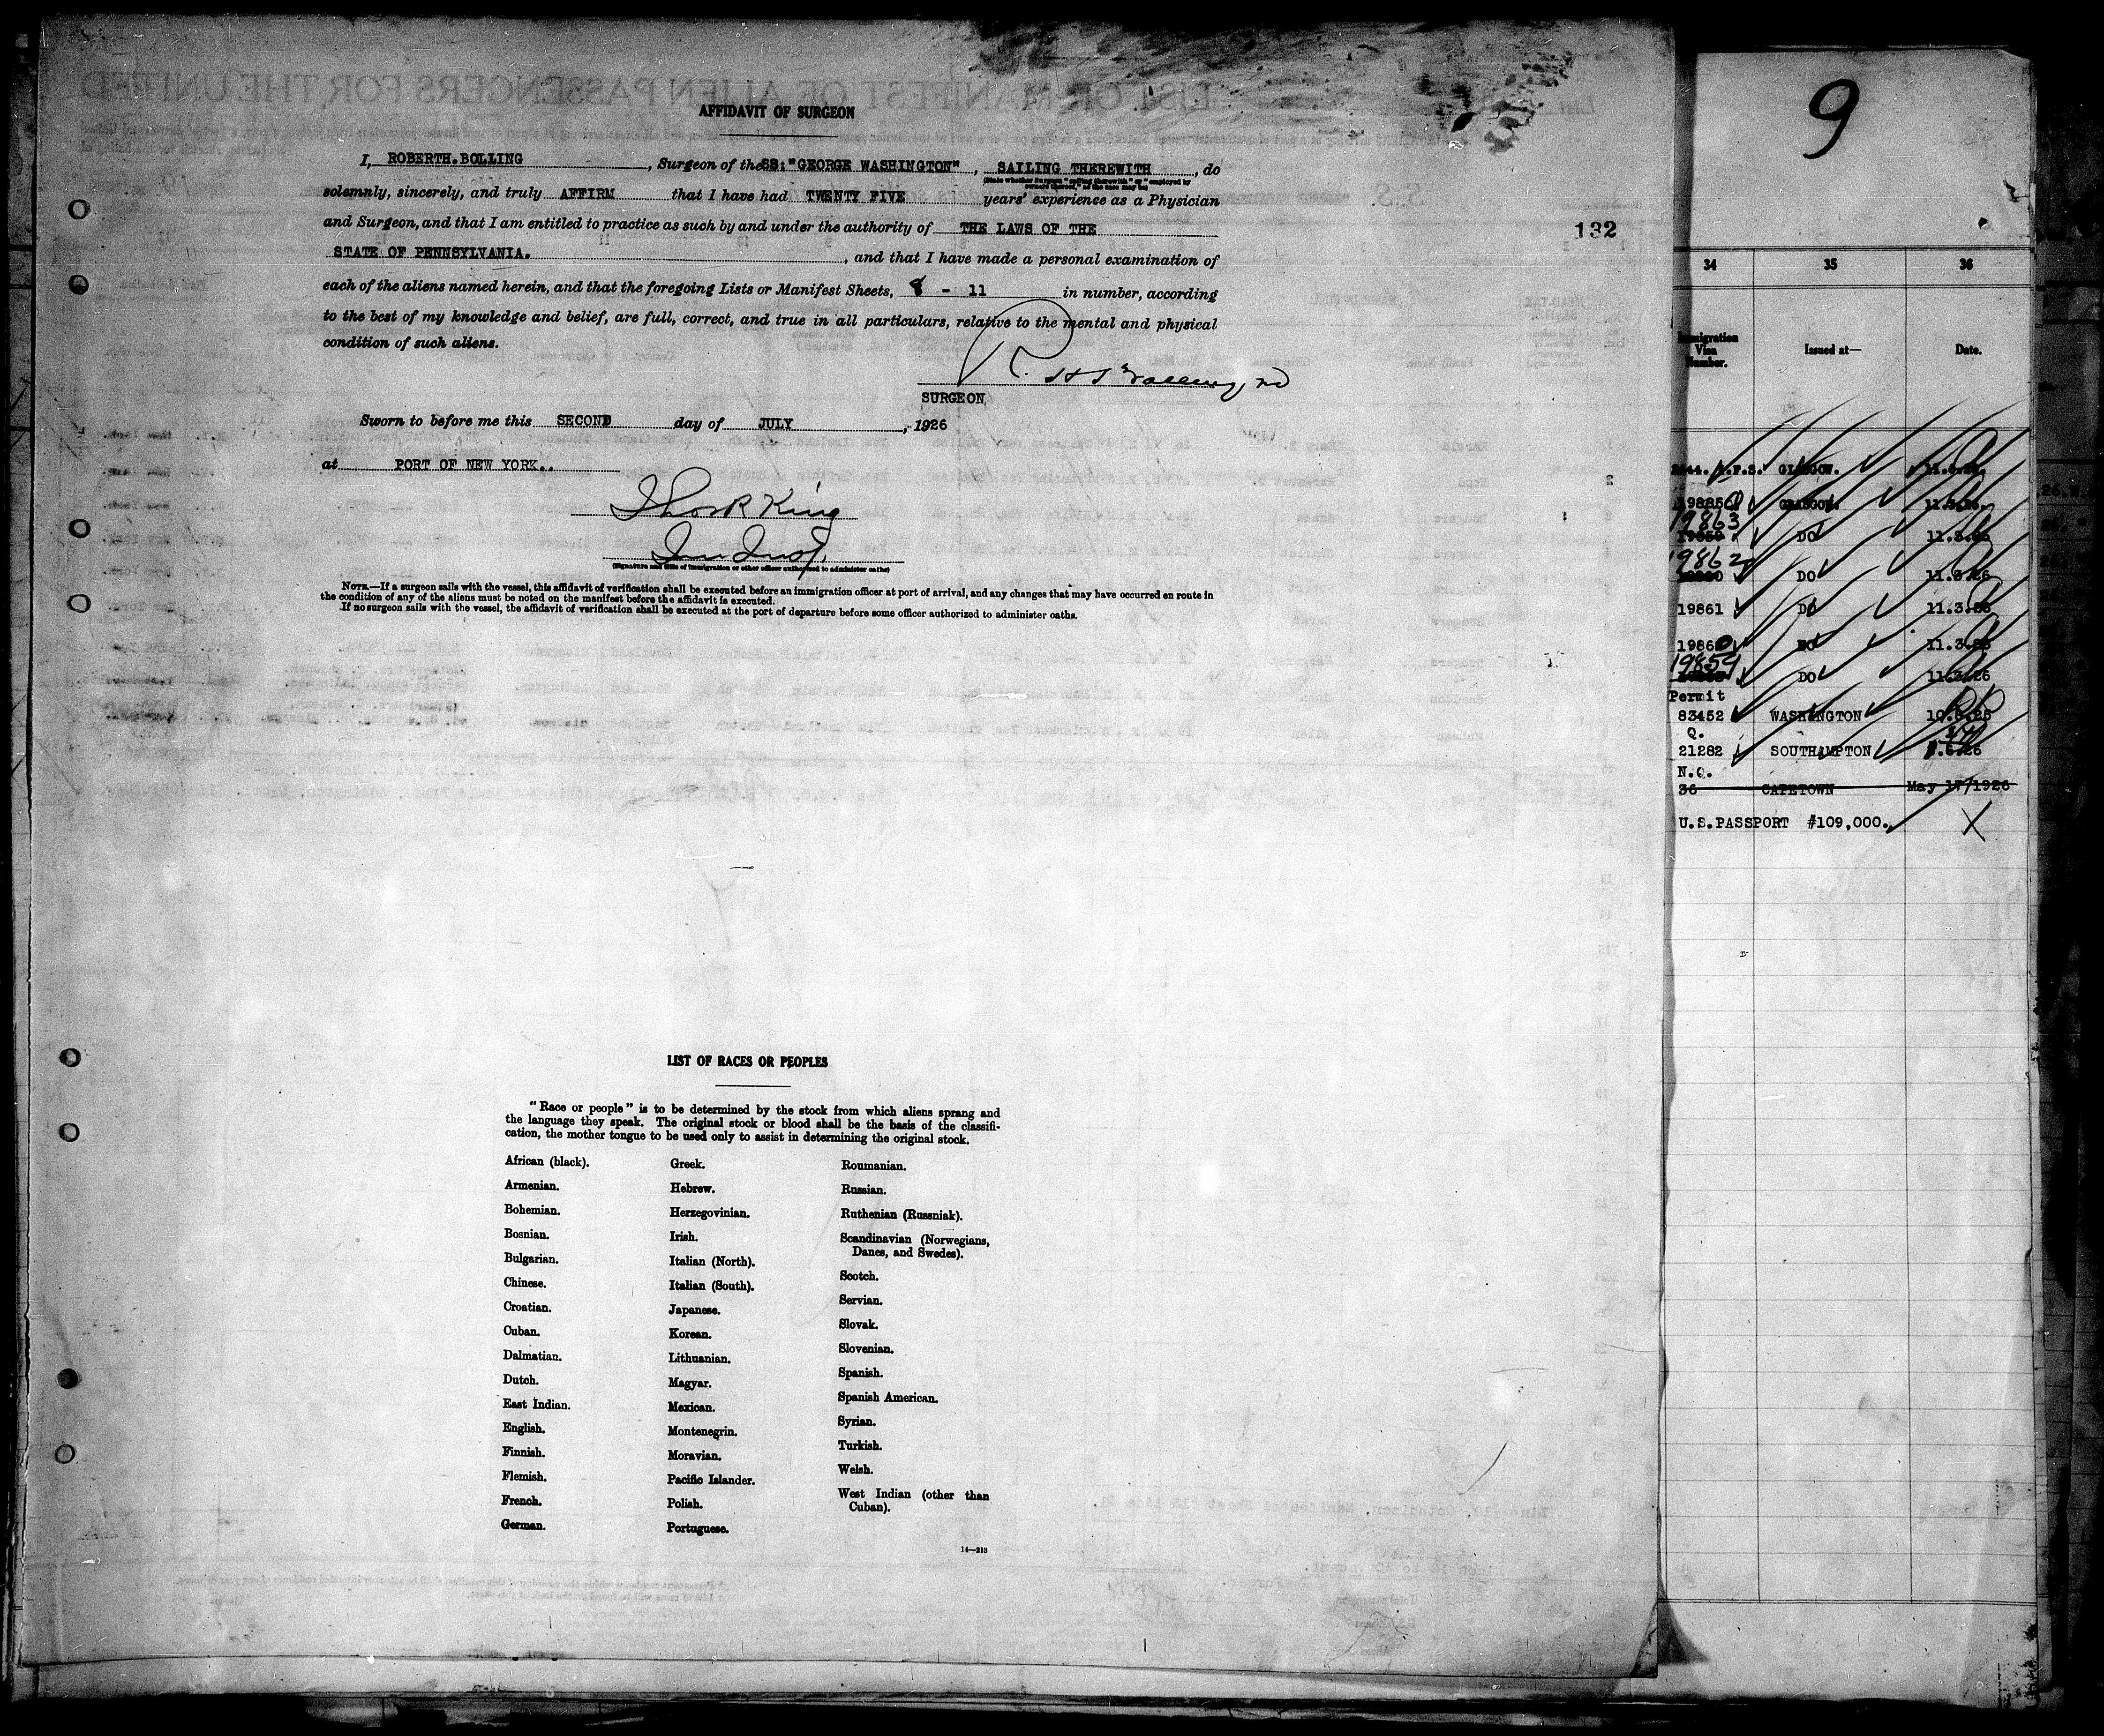 AFFIDAVIT OF SURGEON
I, ROBERTH.BOLLING, Surgeon of the SS:"GEORGE WASHINGTON", SAILING THEREWITH, do
(State whether Surgeon "sailing therewith" or "employed by
owners thereof," as the case may be)
solemnly, sincerely, and truly AFFIRM that I have had TWENTY FIVE years' experience as a Physician
and Surgeon, and that I am entitled to practice as such by and under the authority of THE LAWS OF THE
STATE OF PENNSYLVANIA., and that I have made a personal examination of
each of the aliens named herein, and that the foregoing Lists or Manifest Sheets, 8 - 11 in number, according
to the best of my knowledge and belief, are full, correct, and true in all particulars, relative to the mental and physical
condition of such aliens.
R. H. Bolling, MD
SURGEON
Sworn to before me this SECOND day of JULY, 1926
at PORT OF NEW YORK..
(Signature and title of immigration or other officer authorized to administer oaths)
NOTE.—If a surgeon sails with the vessel, this affidavit of verification shall be executed before an immigration officer at port of arrival, and any changes that may have occurred en route in
the condition of any of the aliens must be noted on the manifest before the affidavit is executed.
If no surgeon sails with the vessel, the affidavit of verification shall be executed at the port of departure before some officer authorized to administer oaths.
LIST OF RACES OR PEOPLES
"Race or people" is to be determined by the stock from which aliens sprang and
the language they speak. The original stock or blood shall be the basis of the classifi-
cation, the mother tongue to be used only to assist in determining the original stock.
African (black).
Armenian.
Bohemian.
Bosnian.
Bulgarian.
Chinese.
Croatian.
Cuban.
Dalmatian.
Dutch.
East Indian.
English.
Finnish.
Flemish.
French.
German.
Greek.
Hebrew.
Herzegovinian.
Irish.
Italian (North).
Italian (South).
Japanese.
Korean.
Lithuanian.
Magyar.
Mexican.
Montenegrin.
Moravian.
Pacific Islander.
Polish.
Portuguese.
Roumanian.
Russian.
Ruthenian (Russniak).
Scandinavian (Norwegians,
Danes, and Swedes).
Scotch.
Servian.
Slovak.
Slovenian.
Spanish.
Spanish American.
Syrian.
Turkish.
Welsh.
West Indian (other than
Cuban).
14—213
132
9
34 35 36
Immigration
Visa
Number.
Issued at—
Date.
GLASGOW.
GLASGOW.
19863 DO 11.3.26
19862 DO 11.3.26
19861 DO 11.3.26
19860 DO 11.3.26
19859 DO 11.3.26
Permit
83452 WASHINGTON
Q.
21282 SOUTHAMPTON
N.Q.
36 CAPETOWN May 17/1926
U.S.PASSPORT #109,000. X